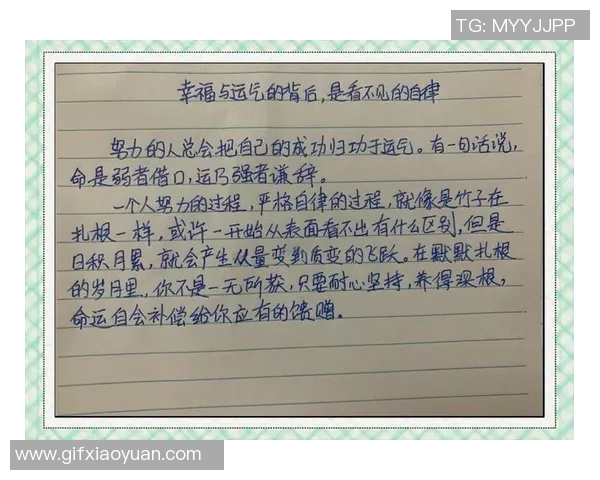 TG: MYYJJPP
幸福与运气的背后,是看不见的自律
努力的人总会把自己的成功归功于运气。有一句话说,
命是弱者借口,运乃强者谦辞。
一个人努力的过程,严格自律的过程,就像是竹子在
扎根一样,或许一开始从表面看不出有什么区别,但是
日积月累,就会产生从量变到质变的飞跃。在默默扎根
的岁月里,你不是一无所获,只要耐心坚持,养得深根,
命运自会补偿给你应有的馈赠。
www.gifxiaoyuan.com